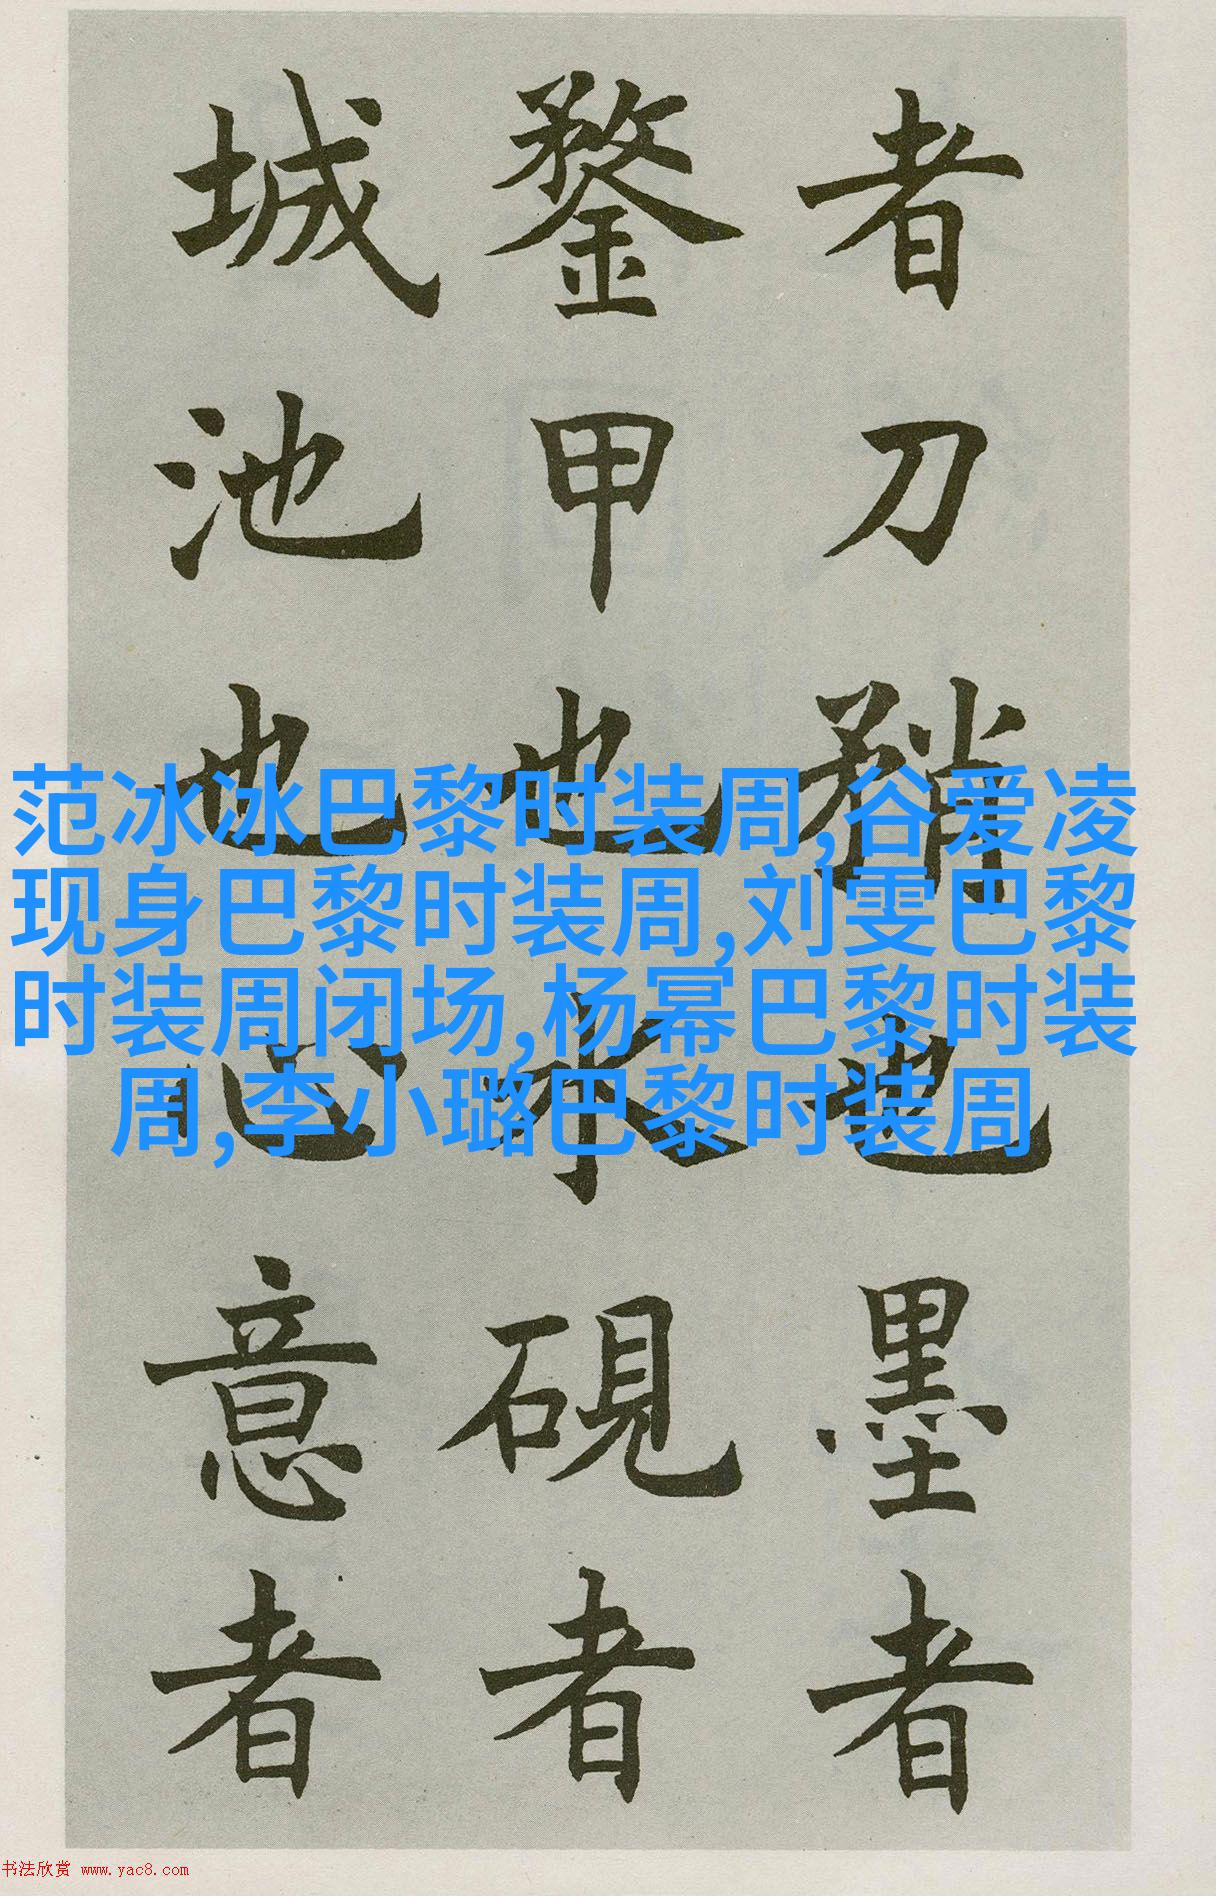 者刀矟也墨者
鍪甲也水硯者
城池也心意者
范冰冰巴黎时装周,谷爱凌
现身巴黎时装周,刘雯巴黎
时装周闭场,杨幂巴黎时装
周,李小璐巴黎时装周
书法欣赏 www.yac8.com